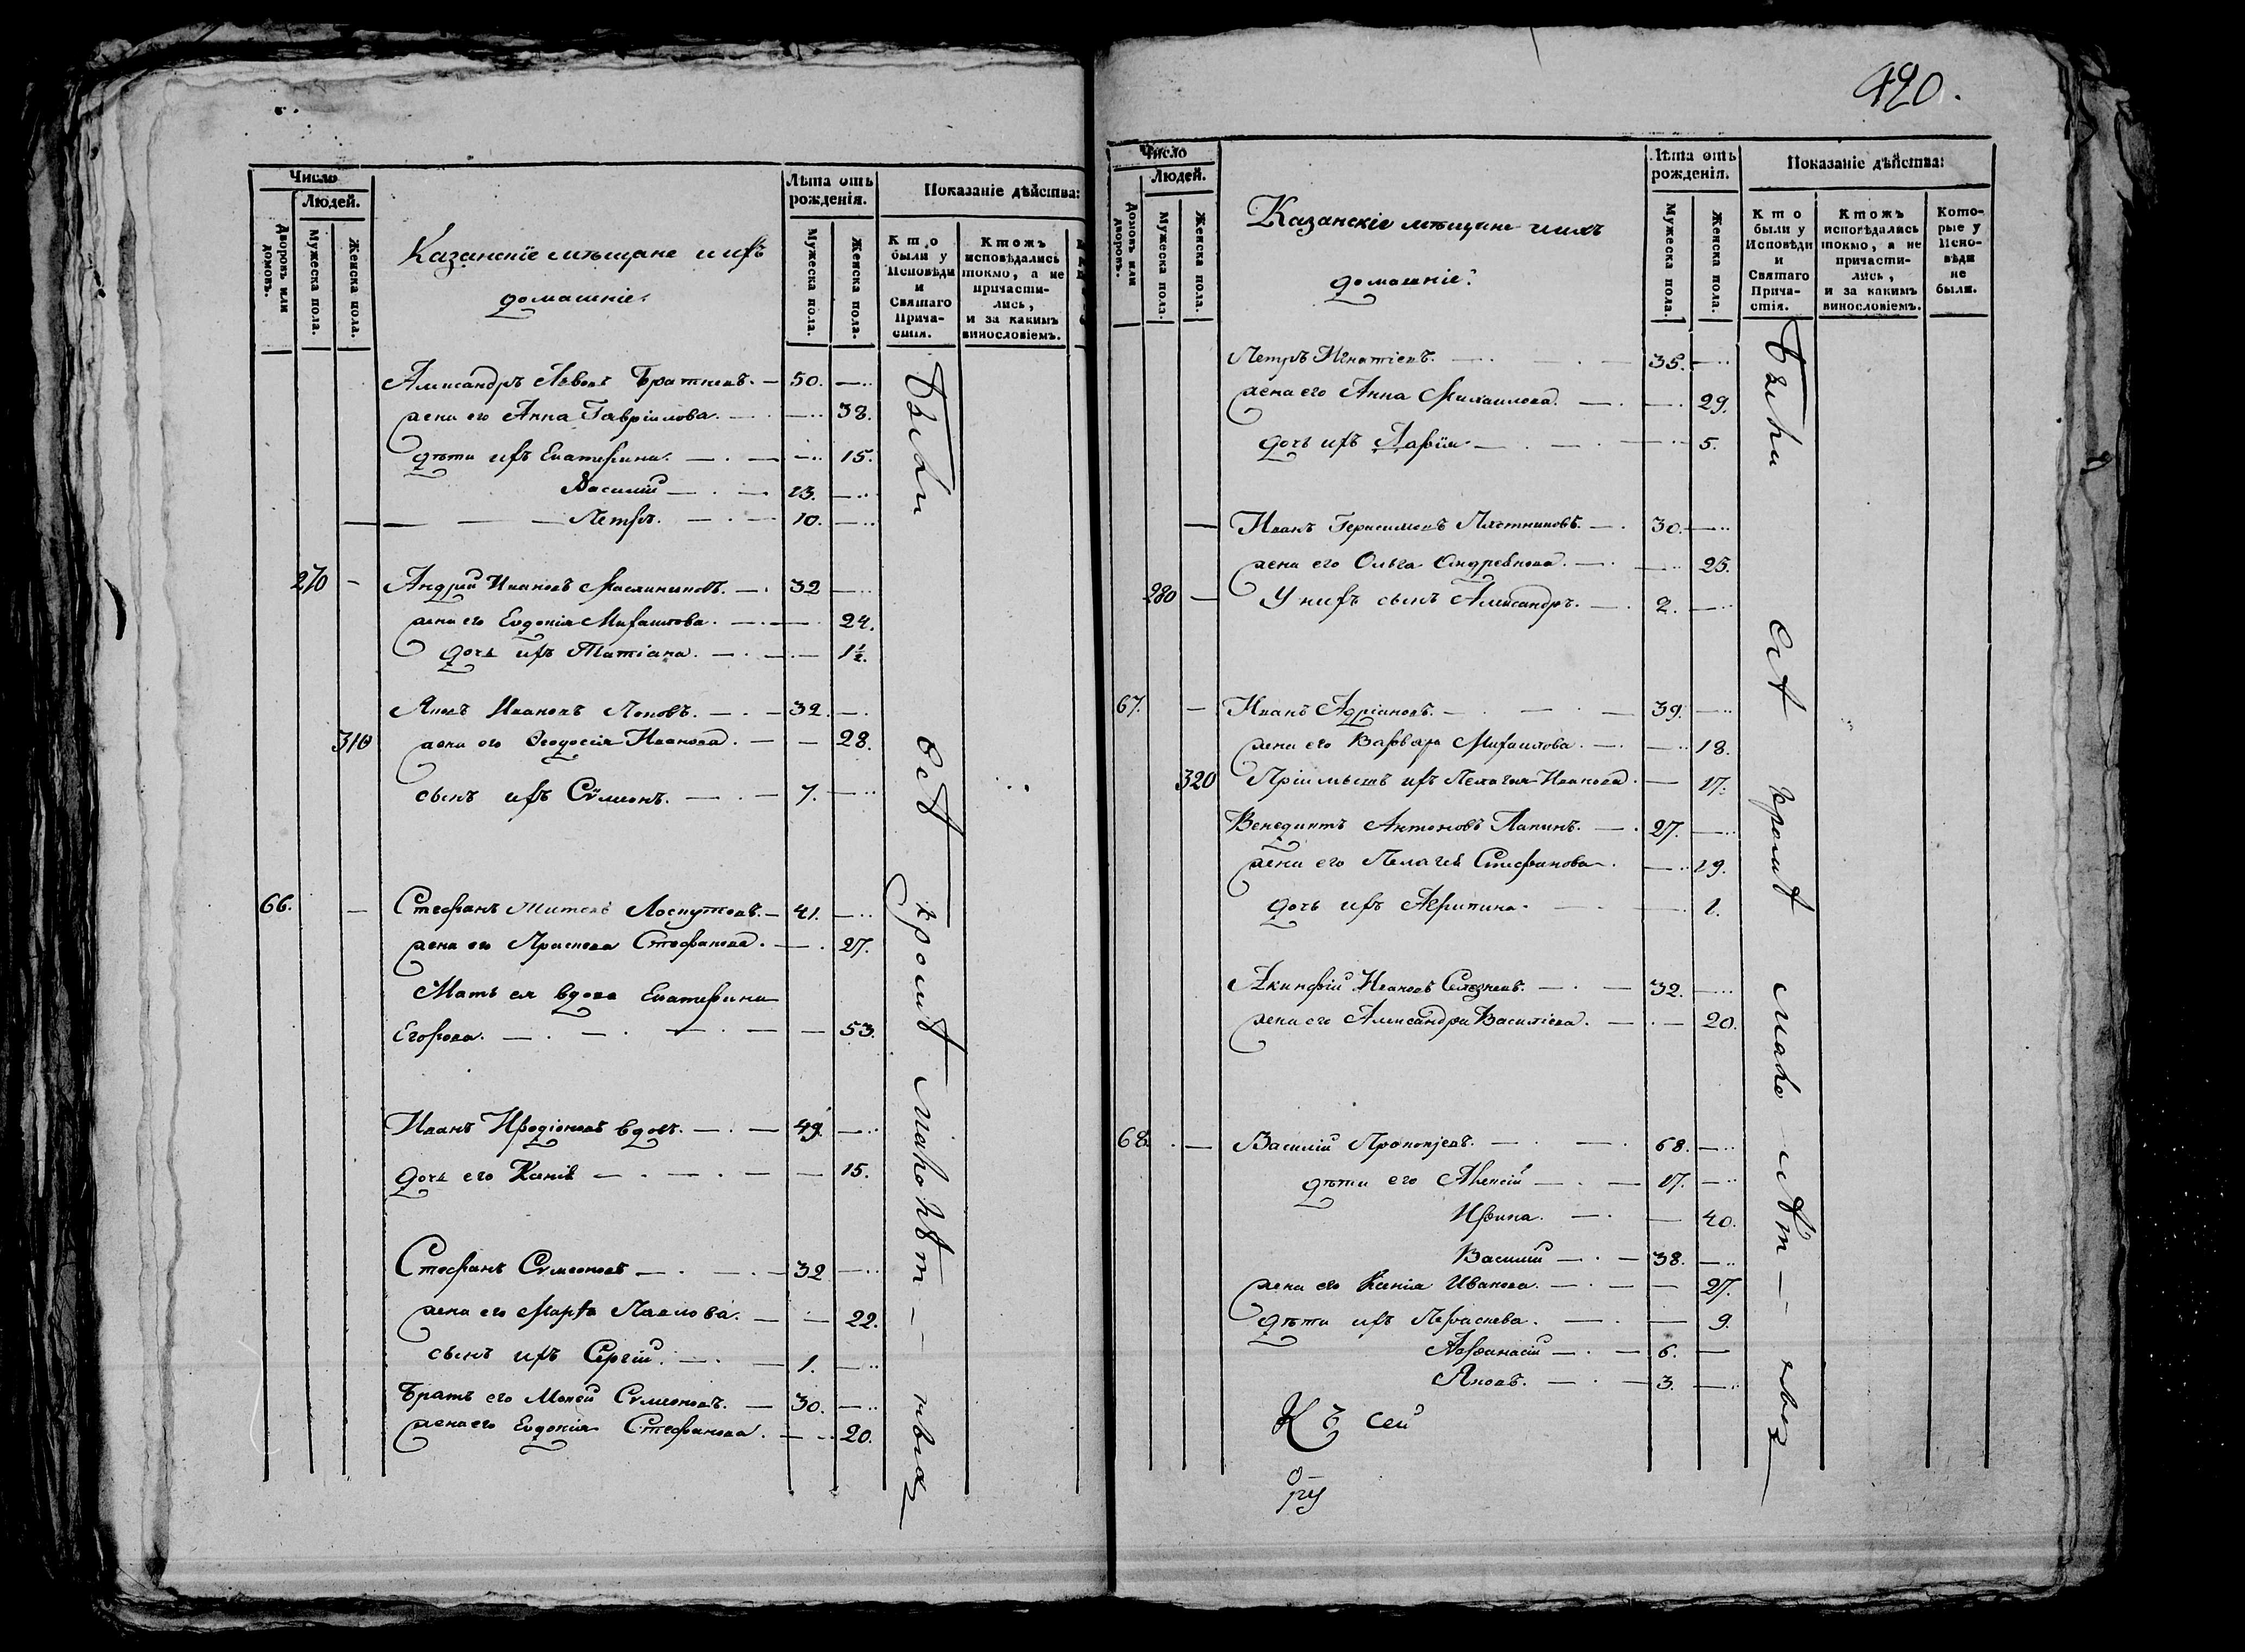 Число
Людей.
Дворовъ или домовъ.
Мужеска пола.
Женска пола.
Казанскіе мѣщане и ихъ
домашніе.
Лѣта отъ рожденія.
Мужеска пола.
Женска пола.
Показаніе дѣйства:
Кто были у Исповѣди и Святаго Прича-стія.
Ктожъ исповѣдались токмо, а не причасти-лись, и за какимъ винословіемъ.
Александръ Львовъ Братневъ. — 50. —
жена его Анна Гавріилова. — — 38.
дѣти ихъ Екатерина. — — 15.
Василій — 13. —
Петръ. — 10. —
270 — Андрей Ивановъ Масленниковъ. — 32 —
жена его Евдокія Михаилова. — — 24.
дочь ихъ Татіана. — — 1½.
Яковъ Ивановъ Поповъ. — 32. —
310 жена его Ѳеодосія Иванова. — — 28.
сынъ ихъ Сѵмеонъ. — 7. —
66. — Стефанъ Титовъ Лоскутовъ. — 41. —
жена его Праскева Стефанова. — — 27.
Мать ея вдова Екатерина
Егорова. — — 53.
Иванъ Иродіоновъ вдовъ. — 49. —
дочь его Ксенія — — 15.
Стефанъ Сѵмеоновъ — 32 —
жена его Марѳа Павлова. — — 22.
сынъ ихъ Сергій. — 1. —
Братъ его Моисей Сѵмеоновъ. — 30. —
жена его Евдокія Стефанова. — — 20.
Были всѣ кромѣ малолѣт —
420.
Число
Людей.
Домовъ или дворовъ.
Мужеска пола.
Женска пола.
Казанскіе мѣщане и ихъ
домашніе:
Лѣта отъ рожденія.
Мужеска пола.
Женска пола.
Показаніе дѣйства:
Кто были у Исповѣди и Святаго Прича-стія.
Ктожъ исповѣдались токмо, а не причасти-лись, и за какимъ винословіемъ.
Кото-рые у Испо-вѣди не были.
Петръ Игнатіевъ. — 35. —
жена его Анна Михаилова. — — 29.
дочь ихъ Дарія. — — 5.
— Иванъ Герасимовъ Плотниковъ. — 30. —
жена его Ольга Андреянова. — — 25.
280 — У нихъ сынъ Александръ. — 2. —
67. — Иванъ Адріановъ. — 39. —
жена его Варвара Михаилова. — — 18.
320 Пріимышъ ихъ Пелагія Иванова. — 17.
Венедиктъ Антоновъ Лапинъ. — 27. —
жена его Пелагея Стефанова. — 19.
дочь ихъ Акрипина. — — 1.
Акинфій Ивановъ Селезневъ. — 32. —
жена его Александра Василіева. — — 20.
68. — Василій Прокопіевъ. — 68. —
дѣти его Алексій — 17. —
Ирина. — — 40.
Василій — 38. —
жена его Ксенія Иванова. — — 27.
дѣти ихъ Параскева. — — 9.
Афанасій — 6. —
Яковъ. — 3. —
Къ сей
Были всѣ кромѣ мало лѣт —